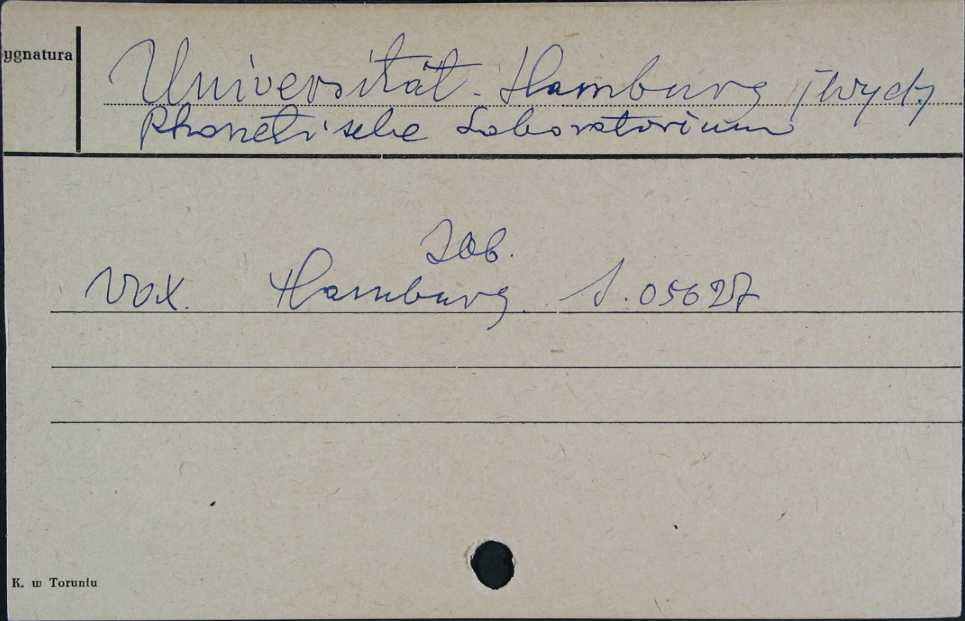 ygnatura
Universität-Hamburg /wyd./
Phonetische Laboratorium
Zob.
Vox. Hamburg. S.05627
K. w Toruniu